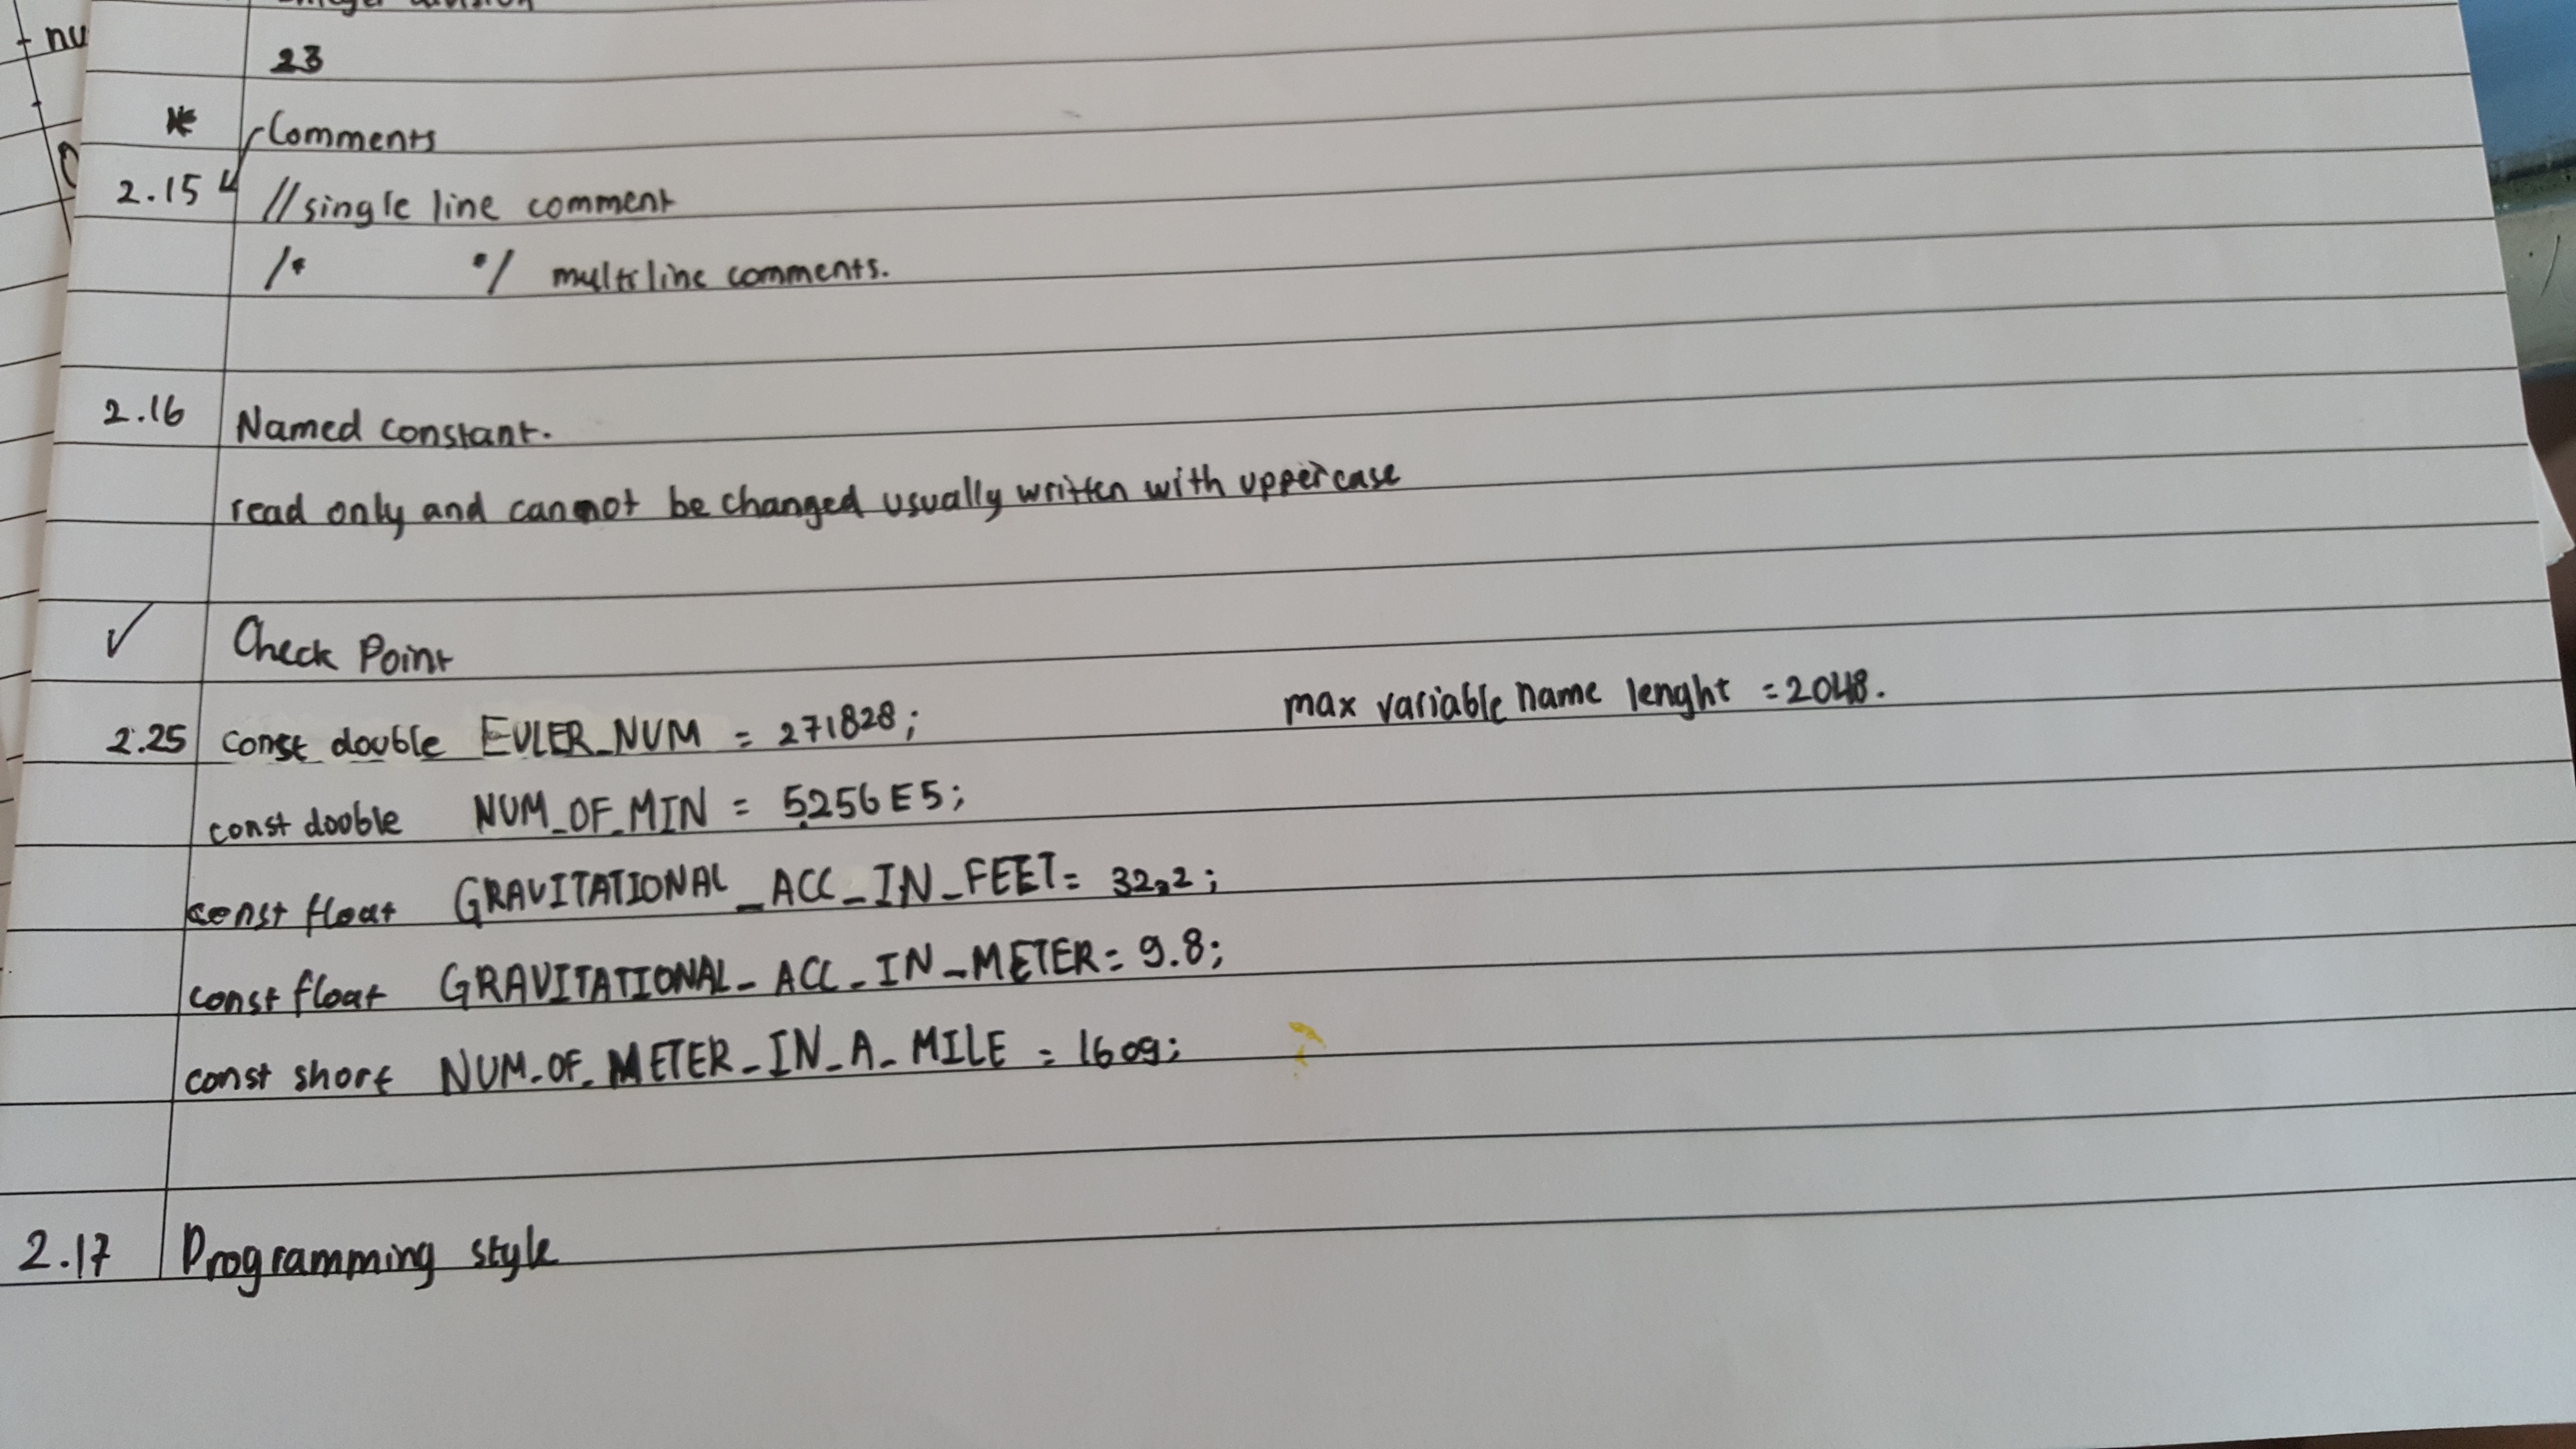 nu
23
* Comments
2.15 //single line comment
/* */ multiline comments.
2.16 Named constant.
read only and cannot be changed usually written with uppercase
✓ Check Point
max variable name lenght = 2048.
2.25 const double EULER_NUM = 271828;
const dooble NUM_OF_MIN = 5.256E5;
const float GRAVITATIONAL_ACC_IN_FEET= 32.2;
const float GRAVITATIONAL_ACC_IN_METER= 9.8;
const short NUM_OF_METER_IN_A_MILE = 1609;
2.17 Programming style